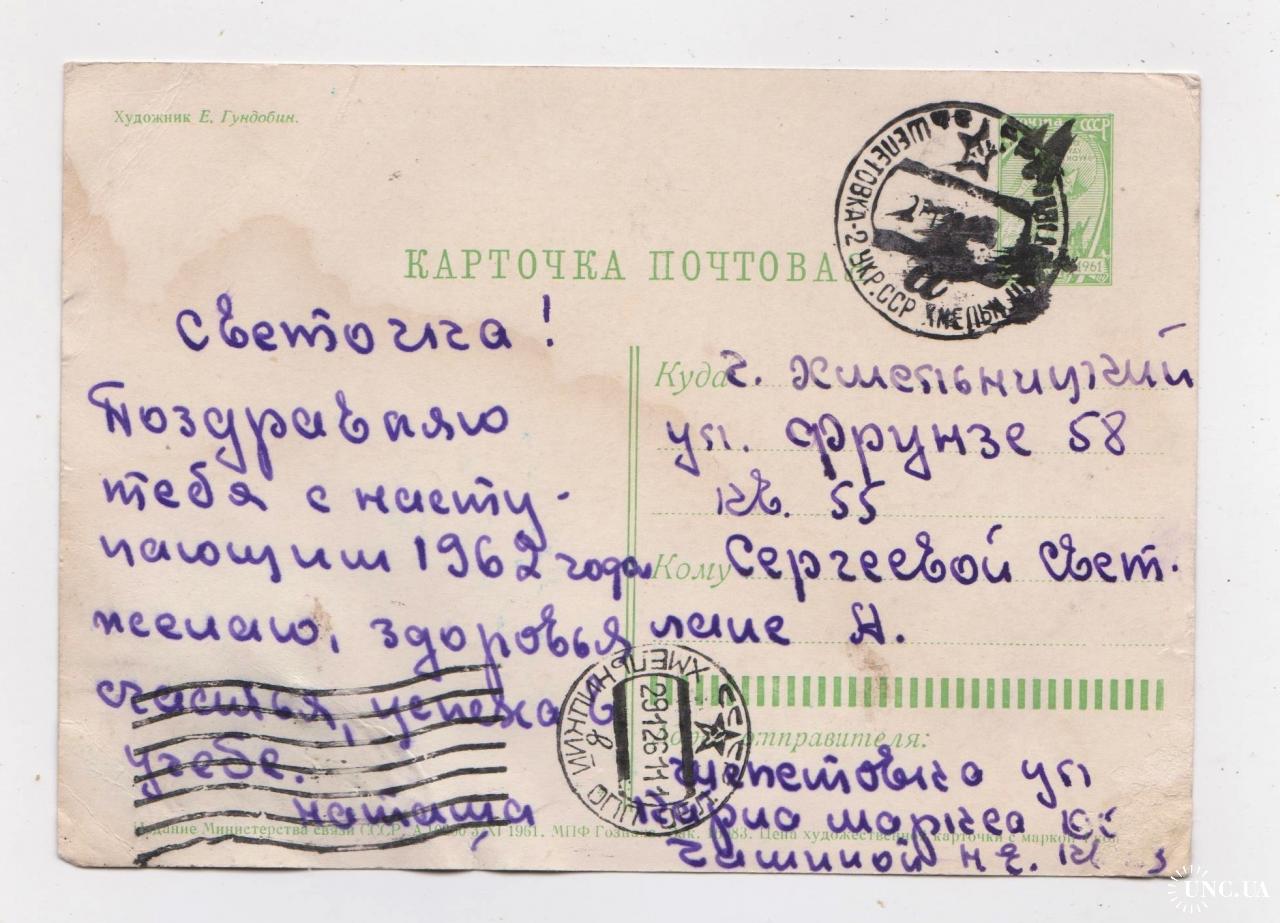 Художник Е. Гундобин.
ПОЧТА СССР
1961
ШЕПЕТОВКА-2 УКР.ССР ХМЕЛЬН
КАРТОЧКА ПОЧТОВА
Светочка!
Поздравляю
тебя с насту-
пающим 1962 года
желаю, здоровья
счастья, успеха в
учебе.
наташа
Куда г. Хмельницкий
ул. Фрунзе 58
кв. 55
Кому Сергеевой Свет.
лане А.
ХМЕЛЬНИЦКИЙ
СССР
291261
отправителя:
Шепетовка ул
Карла маркса
Издание Министерства связи СССР. 1961. МПФ Гознака. Цена художественной карточки с маркой
UNC.UA